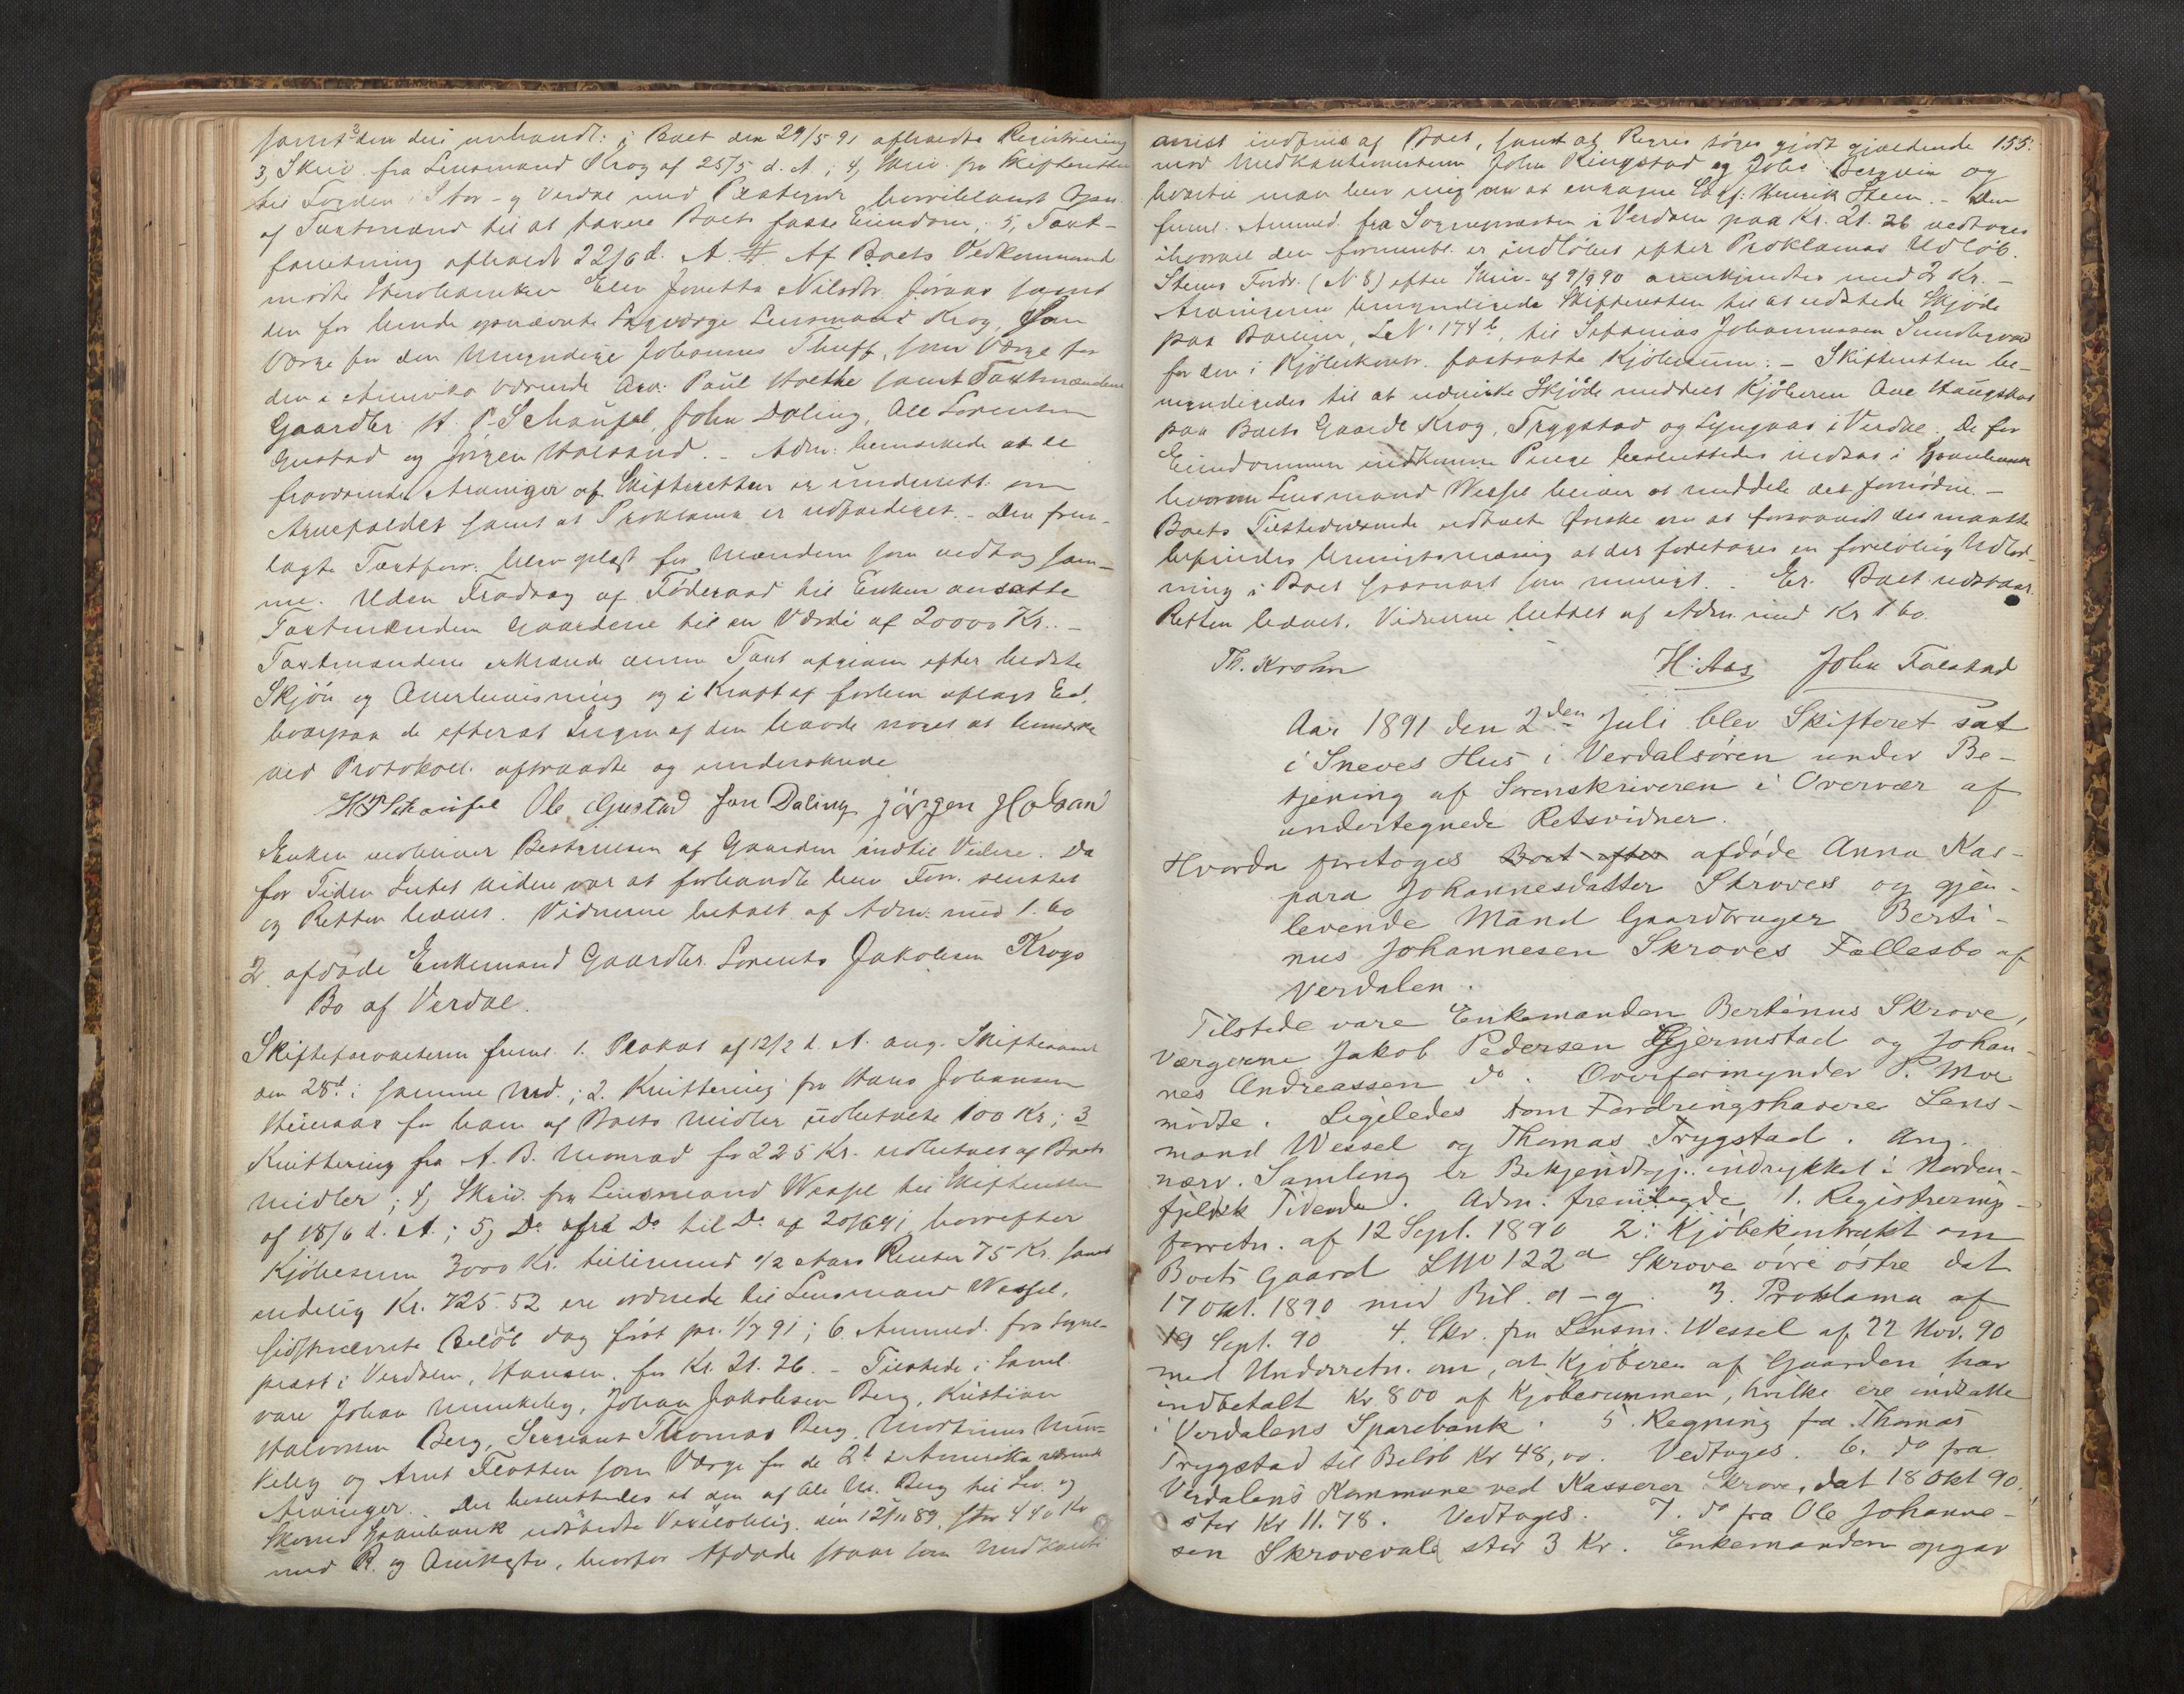 samt den deri omhandl. i Boet den 29/5 91 afholdte Registrering
3, Skriv. fra Lensmand Krog af 25/5 d. A.; 4, Skriv. fra Skifteretten
til Fogden i Stør- og Verdal med Paategn. Opn.
af Taxtmænd til at taxere Boets faste Eiendom; 5, Taxt-
forretning afholdt 22/6 d. A. # Af Boets Vedkommende
mødte Enken Jonetta Nilsdtr. samt
den for hende opnævnte Lagværge Lensmand Krog, Som
Værge for den Umyndige Johannes Thuff, som Værge for
den i Amerika værende Arv. Paul samt Taxtmændene
Gaardbr. H. P. Schaufel, John Daling, Ole Lorentsen
Gustad og Jørgen Holsand. - Adm. bemærkede at de
fraværende Arvinger af Skifteretten er underrett. om
Arvefaldet samt at Proklama er udfærdiget. - Den frem-
lagte Taxtforr. blev oplæst for Mændene som vedtog sam-
me. Uden Fradrag af Føderaad til Enken ansatte
Taxtmændene Gaardene til en Værdi af 20000 Kr. -
Taxtmændene erklærede denne Taxt afgiven efter bedste
Skjøn og Overbevisning og i Kraft af forhen aflagt Ed,
hvorpaa de efterat Ingen af dem havde noget at bemærke
ved Protokoll. aftraadte og underskrede
H P Schaufel Ole Gustad Jon Daling Jörgen Holsand
Enken vedbliver Bestyrelsen af Gaarden indtil Videre. Da
for Tiden Intet videre var at forhandle blev Forr. sluttet
og Retten hævet. Vidnerne betalt af Adm. med 1.60
2. afdøde Enkemand Gaardbr. Lorents Jakobsen Krogs
Bo af Verdal.
Skifteforvalteren freml. 1. Plakat af 12/2 d. A. ang. Skiftesaml.
den 28d. i samme Md.; 2. Kvittering fra Hans Johansen
for ham af Boets Midler udbetalte 100 Kr.; 3
Kvittering fra A. B. Monrad for 225 Kr. udbetalt af Boets
Midler; 4, Skriv. fra Lensmand Wessel til Skifteretten
af 18/6 d. A.; 5, Do fra Do til Do af 20/6 91, hvorefter
Kjøbesum 3000 Kr. tillimed 1/2 Aars Renter 75 Kr. samt
endelig Kr. 725.52 ere ordnede til Lensmand Wessel,
sidstnævnte Beløb dog først pr. 1/7 91; 6. Anmeld. fra Sogne-
præst i Verdalen, Hansen, for Kr. 21.26. - Tilstede i Saml.
vare Johan Munkeby, Johan Jakobsen Berg, Kristian
Halvorsen Berg, Sergeant Thomas Berg, Martinus Mun-
keby og Arnt Flotten som Værge for de 2de i Amerika værende
Arvinger. Der besluttedes at den af Ole M. Berg til Lev. og
Skogns Sparebank udstedte Vexeloblig. den 12/11 89, stor 440 Kr
med R. og Omkostn., hvorfor Afdøde staar som Medkauti
155.
onist indfries af Boet, samt at Regres søges gjort gjældende
mod Medkautionisterne John Ringstad og Johs. Bergvin og
hvortil man blev enig om at engagere Sagf. Henrik Steen. - Den
freml. Anmeld. fra Sognepræsten i Verdalen paa Kr. 21.26 vedtoges
ihvorvel den formentl. er indløbet efter Proklamas Udløb.
Steens Fordr. (N 8) efter Skriv. af 9/9 90 anerkjendtes med 2 Kr. -
Arvingerne bemyndigede Skifteretten til at udstede Skjøde
paa LNo 174 b, til Sefanias Johannessen Sundbyvald
for den i Kjøbekontr. fastsatte Kjøbesum. - Skifteretten be-
myndigedes til at udvirke Skjøde meddelt Kjøberen Ane Haugskot
paa Boets Gaarde Krog, Trygstad og Lyngaas i Verdal. De for
Eiendommen indkomne Penge besluttedes indsat i Sparebank
hvorom Lensmand Wessel bliver at meddele det fornødne. -
Boets Tilstedeværende udtalte Ønske om at forsaavidt det maatte
befindes at der foretages en foreløbig Udlod-
ning i Boet saasnart som muligt. Er. Boet udstaar.
Retten hævet. Vidnerne bettalt af Adm. med Kr 1.60.
Th. Krohn H. Aas John Falstad
Aar 1891 den 2den Juli blev Skifteret sat
i Sneves Hus i Verdalsören under Be-
tjening af Sorenskriveren i Overvær af
undertegnede Retsvidner.
Hvorda foretoges Boet efter afdøde Anna Kas-
para Johannesdatter Skroves og gjen-
levende Mand Gaardbruger Berti-
nus Johannesen Skroves Fællesbo af
Verdalen.
Tilstede vare Enkemanden Bertinus Skrove,
Værgerne Jakob Pedersen Hjermstad og Johan-
nes Andreassen do. Overformynder P. Moe
mödte. Ligeledes som Fordringshavere Lens-
mand Wessel og Thomas Trygstad. Ang.
nærv. Samling er Bekjendtgj. indrykket i Norden-
fjeldsk Tidende. Adm. fremlagde, 1. Registrerings-
forretn. af 12 Sept. 1890 2. Kjöbekontrakt om
Boets Gaard LNo 122 a Skrove övre östre dat
17 Okt. 1890 med Bil. a-g. 3. Proklama af
19 Sept. 90 4. Skr. fra Lensm. Wessel af 22 Nov. 90
med Underretn. om, at Kjöberen af Gaarden har
indbetalt Kr. 800 af Kjöbesummen, hvilke ere indsatte
i Verdalens Sparebank. 5. Regning fra Thomas
Trygstad til Belöb Kr 48,00. Vedtoges. 6. do fra
Verdalens Kommune ved Kasserer Skrove, dat 18 Okt 90,
stor Kr 11.78. Vedtoges. 7. do fra Ole Johanne-
sen Skrovevald stor 3 Kr. Enkemanden opgav